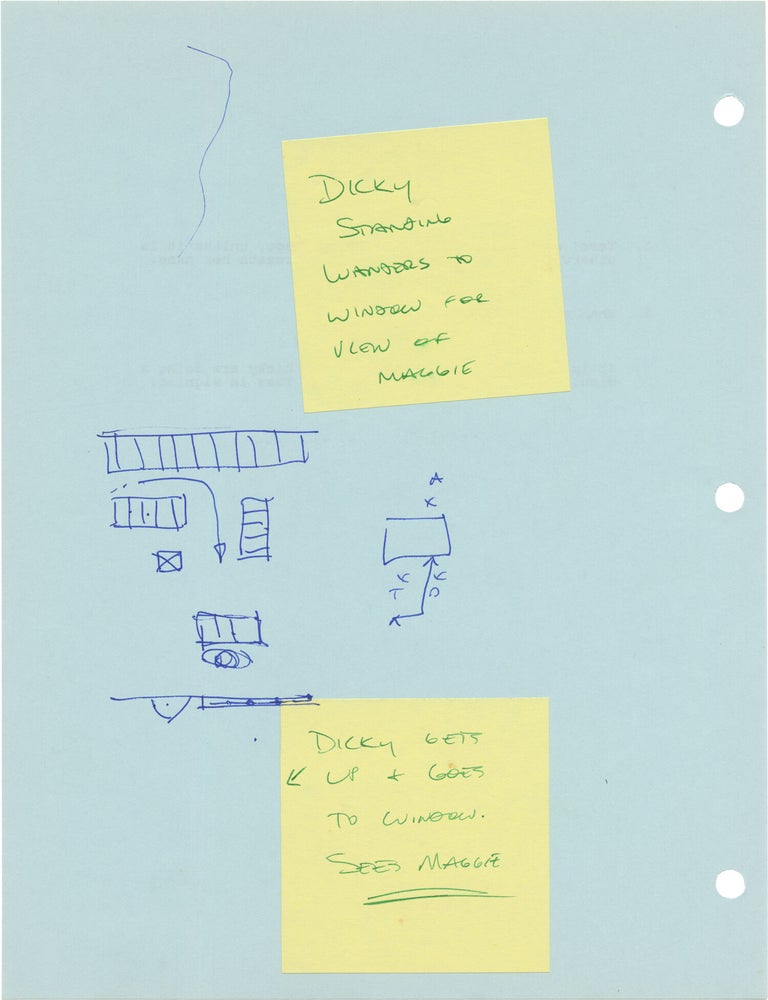 DICKY
STANDING
WANDERS TO
WINDOW FOR
VIEW OF
MAGGIE
A
X
X X
T D
DICKY GETS
UP & GOES
TO WINDOW.
SEES MAGGIE